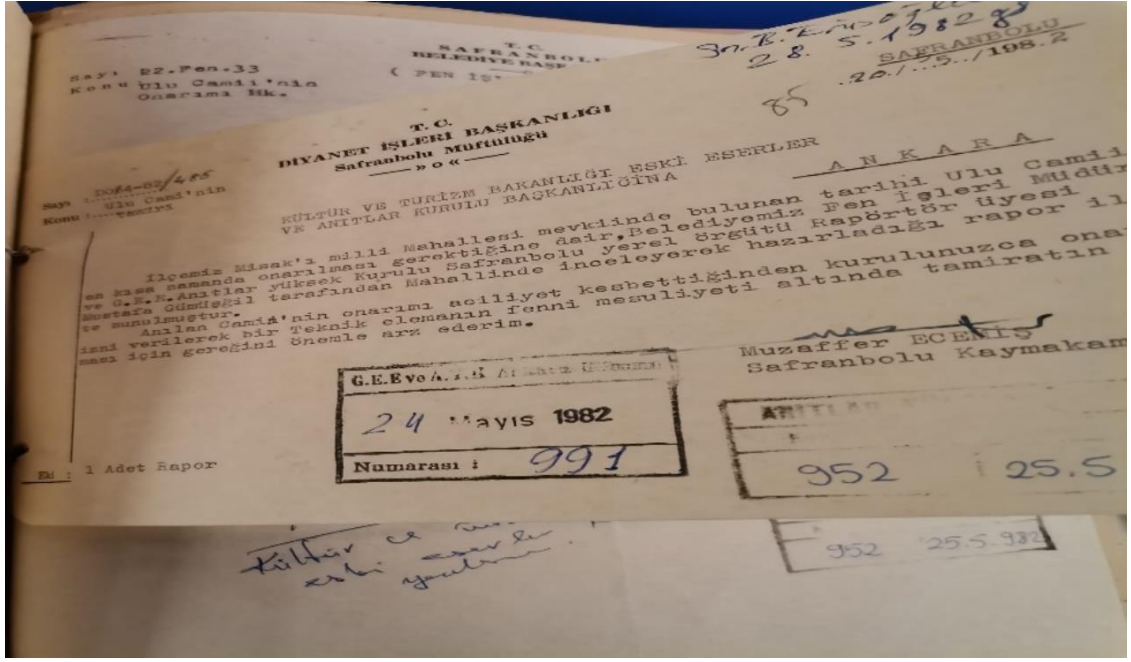 T. C.
SAFRANBOLU
BELEDİYE BAŞK
( FEN İŞ
Sayı 22.Fen.33
Konu Ulu Camii'nin
Onarımı Hk.
Sn. B.
28.5.1982
SAFRANBOLU
20/...5../198.2
85
T. C.
DİYANET İŞLERİ BAŞKANLIĞI
Safranbolu Müftülüğü
—— » o « ——
Sayı :
/485
Konu : Ulu Cami'nin
KÜLTÜR VE TURİZM BAKANLIĞI ESKİ ESERLER
VE ANITLAR KURULU BAŞKANLIĞINA
A N K A R A
İlçemiz Misak'ı milli Mahallesi mevkiinde bulunan tarihi Ulu Camii
en kısa zamanda onarılması gerektiğine dair,Belediyemiz Fen İşleri Müdür
ve G.E.E.Anıtlar yüksek Kurulu Safranbolu yerel örgütü Rapörtör üyesi
Mustafa Gümüşgil tarafından Mahallinde inceleyerek hazırladığı rapor il
te sunulmuştur.
Anılan Camii'nin onarımı aciliyet kesbettiğinden kurulunuzca ona
izni verilerek bir Teknik elemanın fenni mesuliyeti altında tamiratın
ması için gereğini önemle arz ederim.
Muzaffer ECEMİŞ
Safranbolu Kaymakam
G.E.E ve A.
24 Mayıs 1982
Numarası : 991
ANITLAR
952 25.5
Eki : 1 Adet Rapor
Kültür ve
eski eserler
952 25.5.982